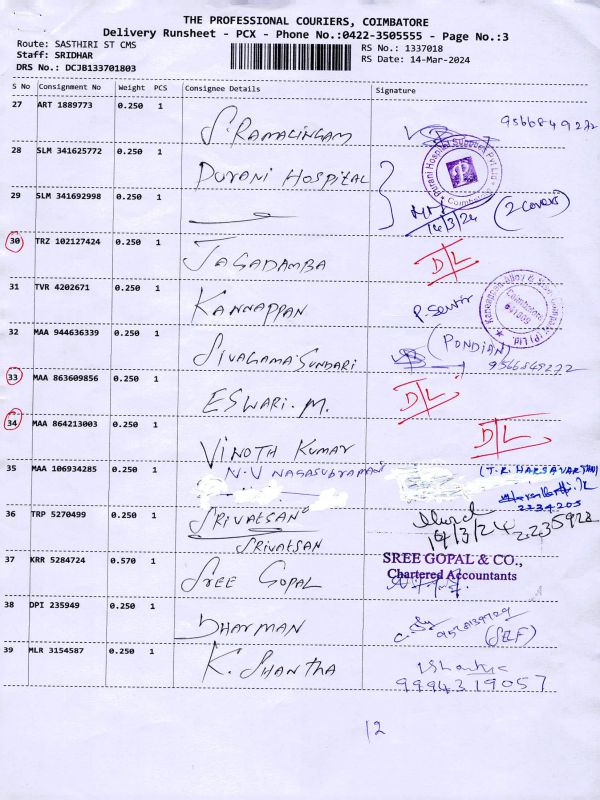 THE PROFESSIONAL COURIERS, COIMBATORE
Delivery Runsheet - PCX - Phone No.:0422-3505555 - Page No.:3
Route: SASTHIRI ST CMS
RS No.: 1337018
Staff: SRIDHAR
RS Date: 14-Mar-2024
DRS No.: DCJB133701803
S No Consignment No Weight PCS Consignee Details Signature
27 ART 1889773 0.250 1 S. RAMALINGAM 9566849272
28 SLM 341625772 0.250 1 PURANI HOSPITAL
29 SLM 341692998 0.250 1 14/3/24 (2 covers)
30 TRZ 102127424 0.250 1 JAGADAMBA D/L
31 TVR 4202671 0.250 1 KANNAPPAN
32 MAA 944636339 0.250 1 SIVAGAMA SUNDARI (PONDIAN)
33 MAA 863609856 0.250 1 ESWARI. M. D/L
34 MAA 864213003 0.250 1 VINOTH KUMAR D/L
35 MAA 106934285 0.250 1 N.V NAGASUBRAMANI
36 TRP 5270499 0.250 1 SRIVATSAN 14/3/24 2235928
SRIVATSAN
37 KRR 5284724 0.570 1 SREE GOPAL SREE GOPAL & CO.,
Chartered Accountants
38 DPI 235949 0.250 1 DHARMAN (SELF)
39 MLR 3154587 0.250 1 K. SHANTHA
9994319057
12